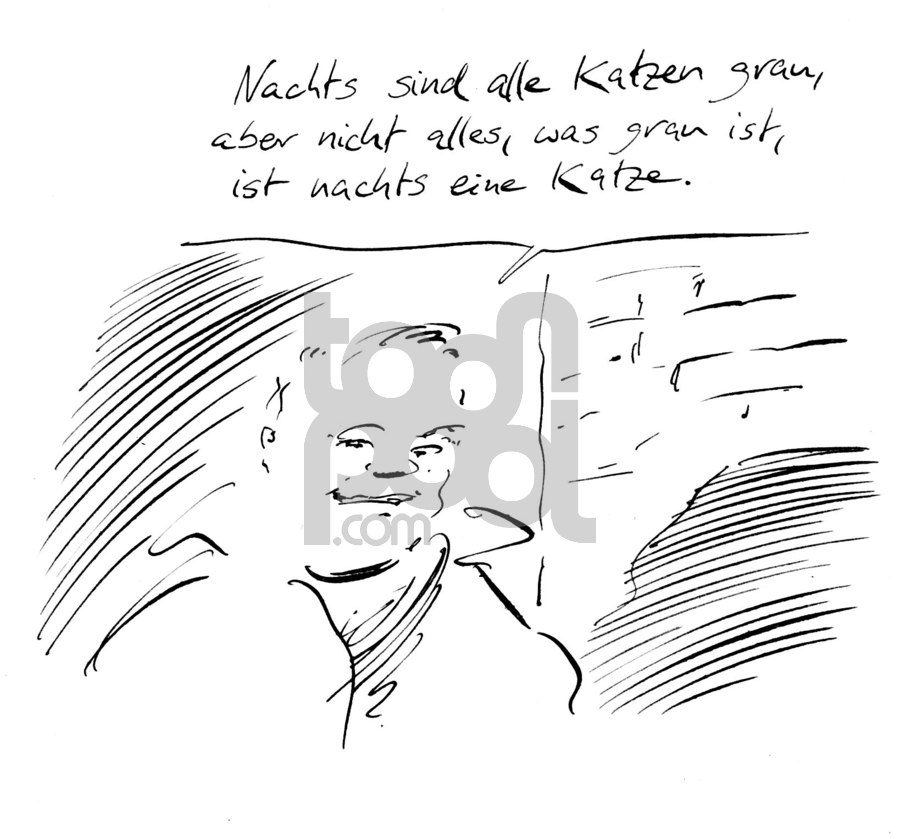 Nachts sind alle Katzen grau,
aber nicht alles, was grau ist,
ist nachts eine Katze.
toon
pool
.com